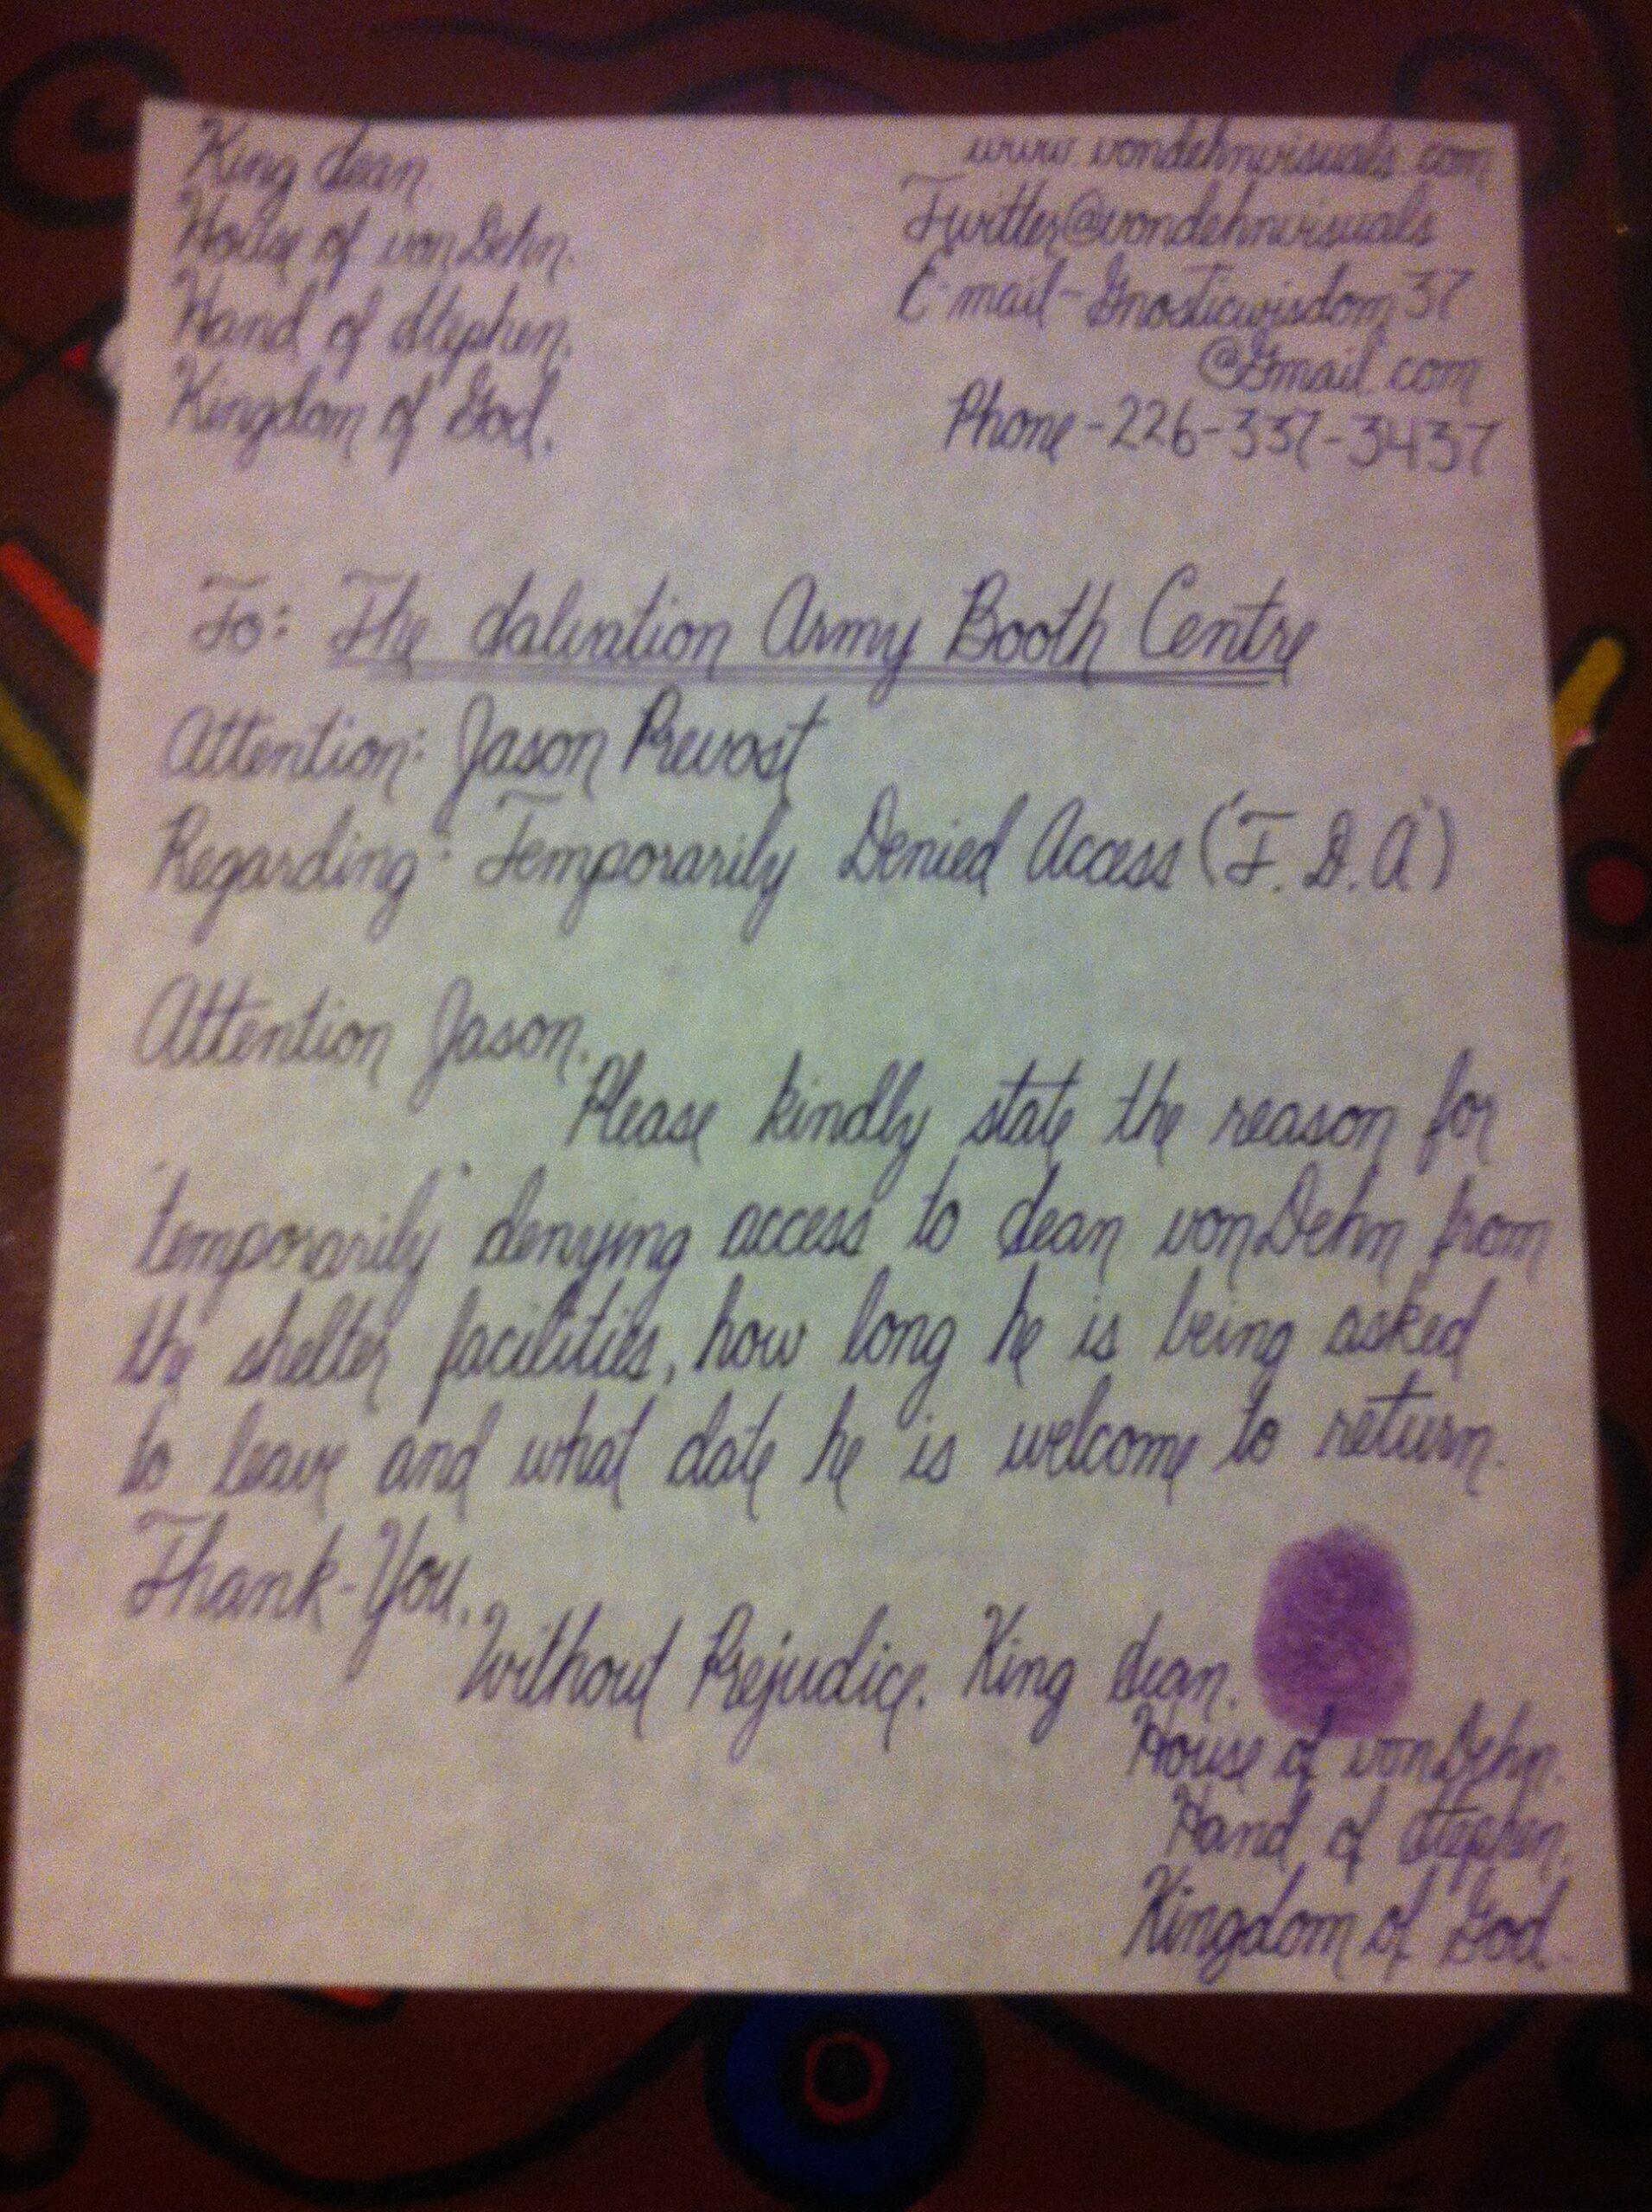 King dean.
House of vonDehn.
Hand of Stephen.
Kingdom of God.
www.vondehnvisuals.com
Twitter@vondehnvisuals
E-mail-Gnosticwisdom37
@Gmail.com
Phone-226-337-3437
To: The Salvation Army Booth Centre
Attention: Jason Prevost
Regarding: Temporarily Denied Access ('T.D.A')
Attention Jason.
Please kindly state the reason for
'temporarily' denying access to dean vonDehn from
the shelter facilities, how long he is being asked
to leave and what date he is welcome to return.
Thank-You.
Without Prejudice. King dean.
House of vonDehn.
Hand of Stephen.
Kingdom of God.